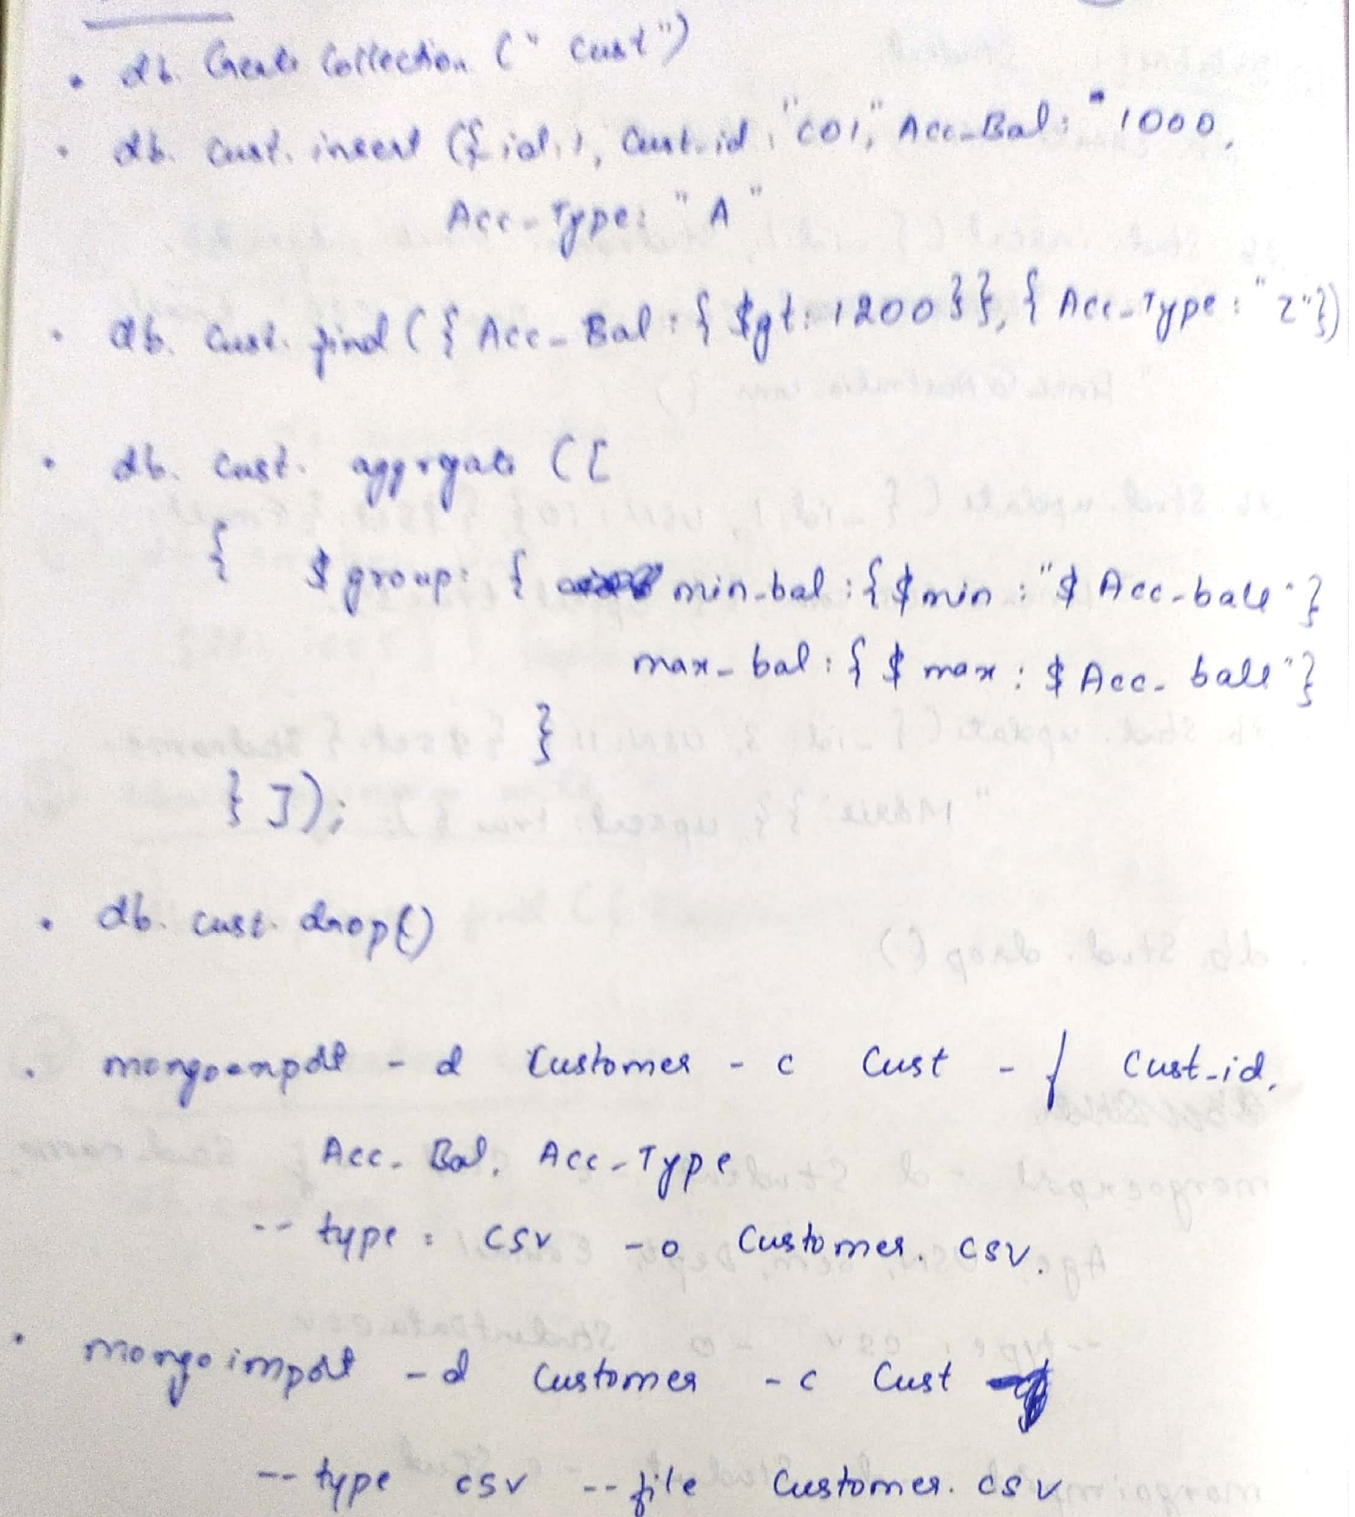 • db. Create Collection (" Cust")
• db. Cust. insert ({ id: 1, Cust-id : "C01", Acc-Bal: " 1000,
Acc-Type: "A"
• db. Cust. find ({ Acc-Bal : { $gt: 1200 }}, { Acc-Type : "Z"})
• db. Cust. aggregate ([
{ $group: { min-bal : { $min : "$ Acc-ball" }
max-bal : { $ max : $ Acc-ball" }
}
} ]);
• db. Cust. drop()
• mongoexport - d Customer - c Cust - f Cust-id,
Acc-Bal, Acc-Type
-- type = csv -o Customer. csv.
• mongoimport - d Customer - c Cust
-- type csv -- file Customer. csv